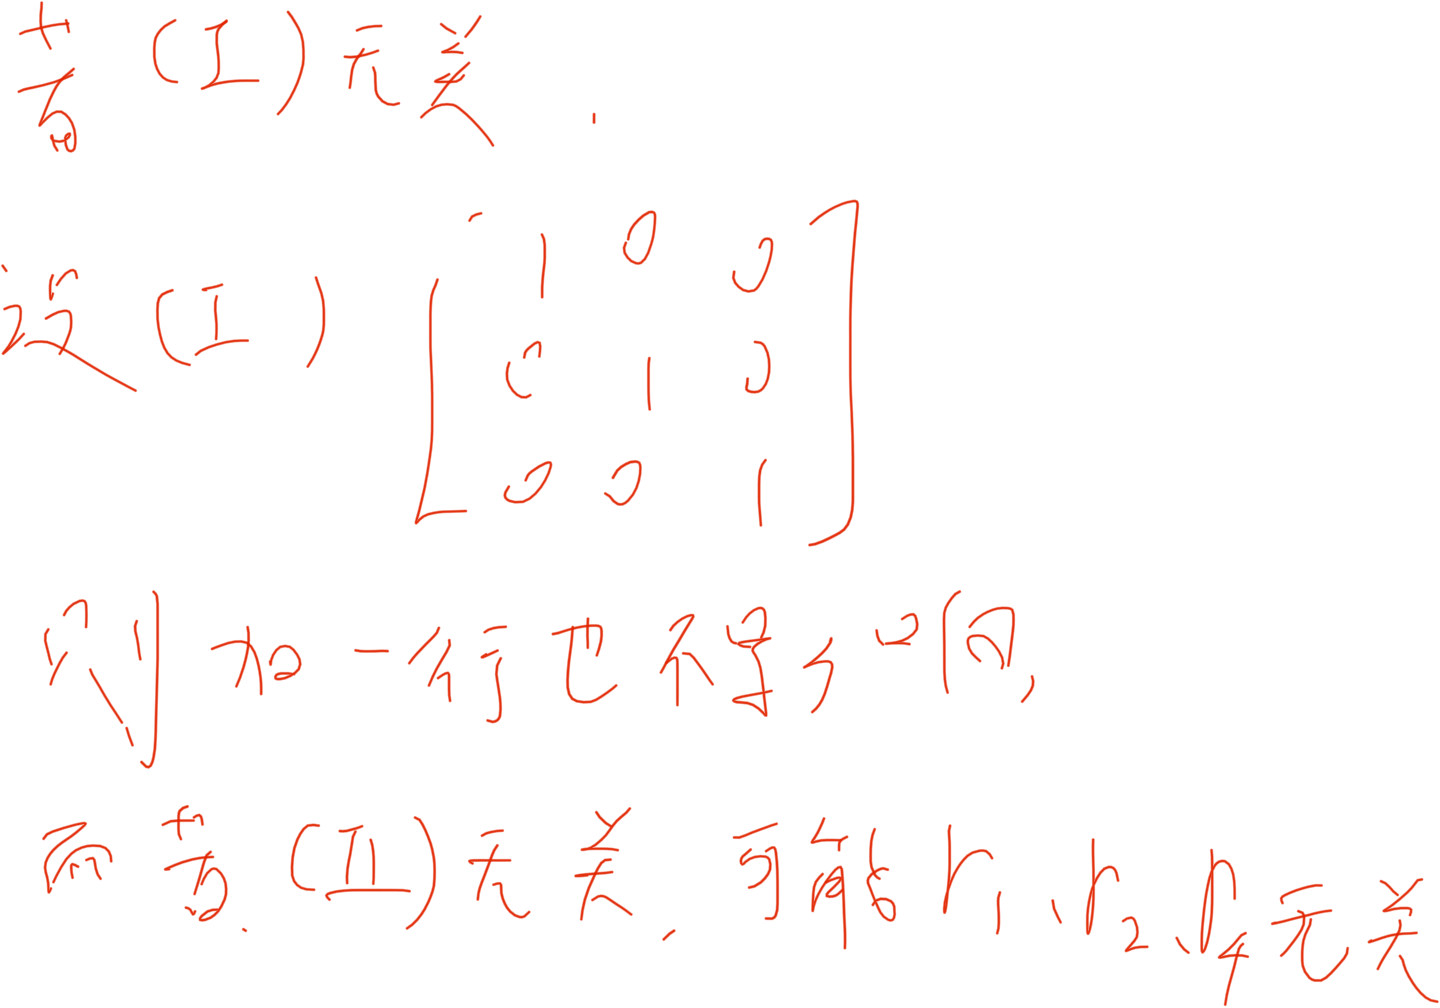 若(I)无关.
设(I) [1 0 0
0 1 0
0 0 1]
则加一行也不影响,
而若(II)无关.可能r₁、r₂、r₄无关